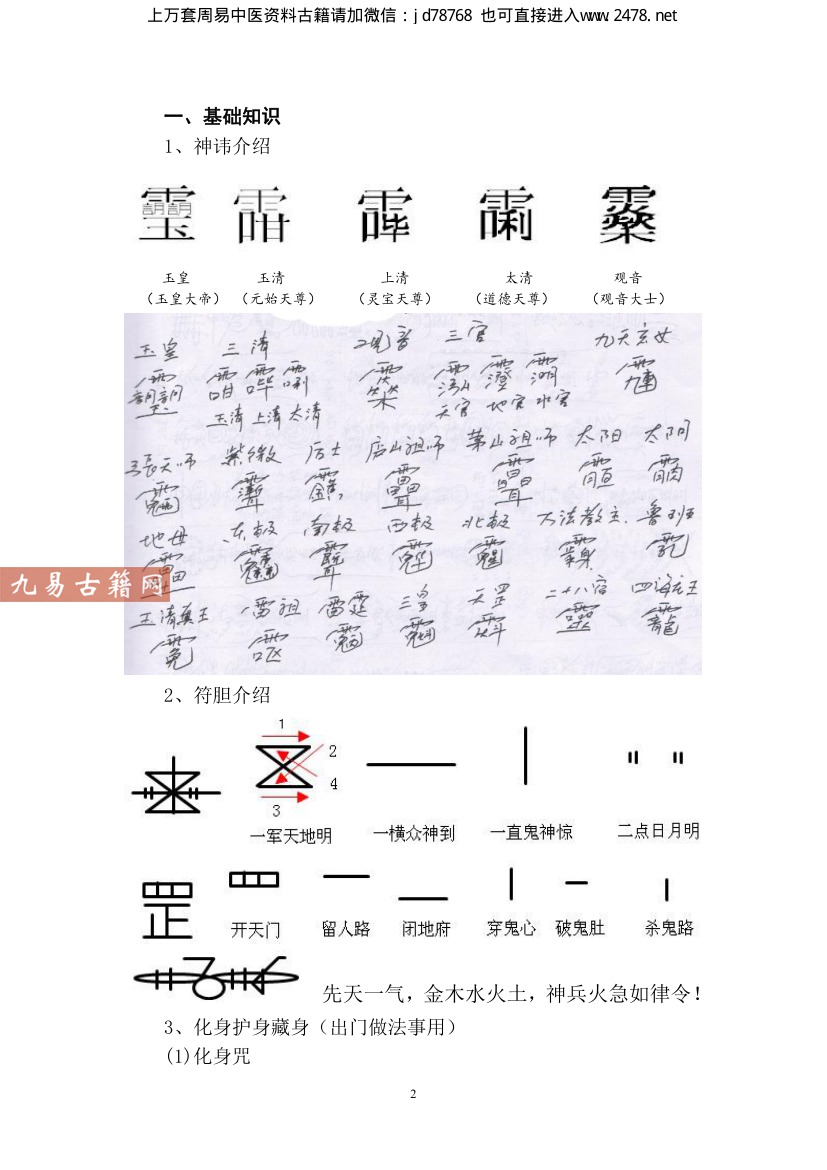 上万套周易中医资料古籍请加微信：jd78768 也可直接进入www.2478.net
一、基础知识
1、神讳介绍
玉皇 玉清 上清 太清 观音
（玉皇大帝） （元始天尊） （灵宝天尊） （道德天尊） （观音大士）
玉皇 三清 观音 三官 九天玄女
玉清 上清 太清 天官 地官 水官
张天师 紫微 后土 庐山祖师 茅山祖师 太阳 太阴
地母 东极 南极 西极 北极 万法教主 鲁班
九易古籍网
玉清真王 雷祖 雷霆 三皇 天罡 二十八宿 四海龙王
2、符胆介绍
1
2
4
3
一军天地明 一横众神到 一直鬼神惊 二点日月明
罡 开天门 留人路 闭地府 穿鬼心 破鬼肚 杀鬼路
先天一气，金木水火土，神兵火急如律令！
3、化身护身藏身（出门做法事用）
(1)化身咒
2